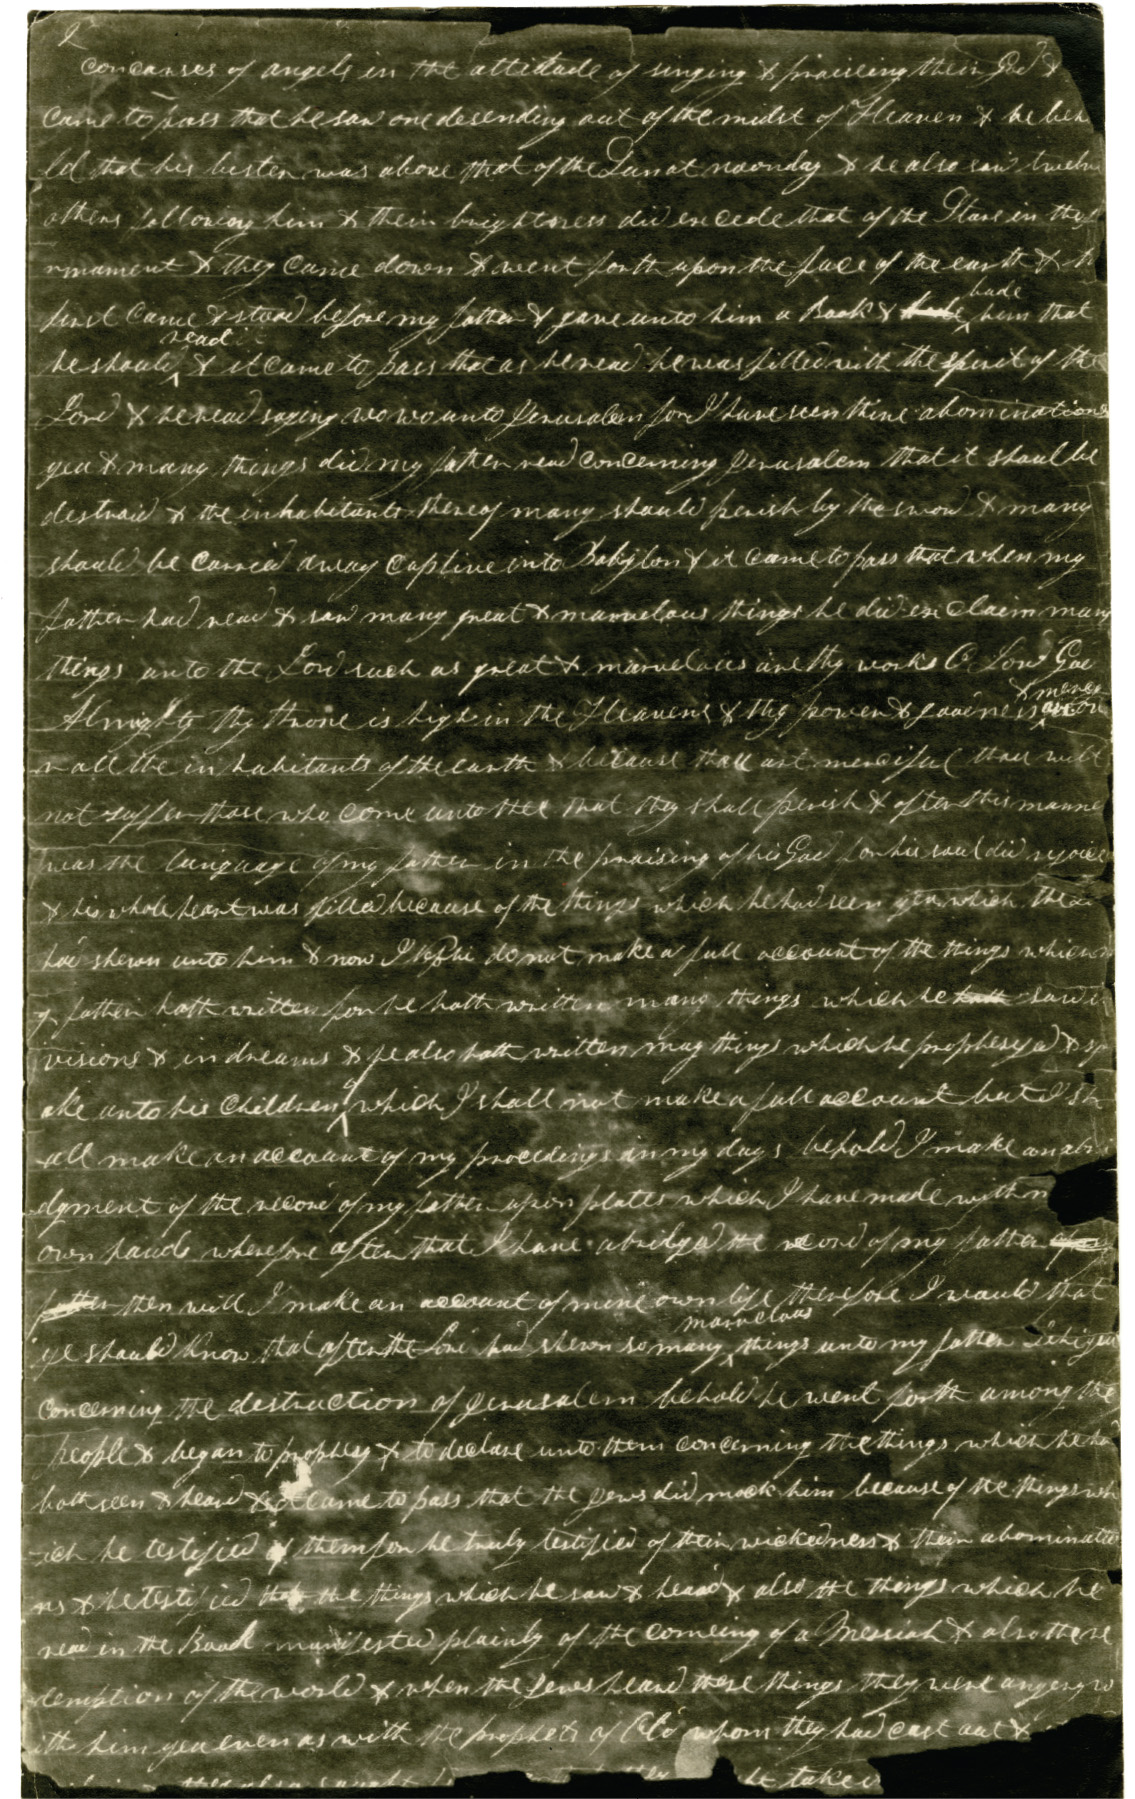 2
concorses of angels in the attitude of singing & praiseing their God &
came to pass that he saw one desending out of the midst of Heaven & he beh
ld that his luster was above that of the Sun at noonday & he also saw twelve
others following him & their brightness did excede that of the Stars in the
rmament & they came down & went forth upon the face of the earth &
first came & stood before my father & gave unto him a Book & bade him that
he should read & it came to pass that as he read he was filled with the spirit of the
Lord & he read saying wo wo unto Jerusalem for I have seen thine abominations
yea & many things did my father read concerning Jerusalem that it should be
destroid & the inhabitants thereof many should perish by the sword & many
should be carried away captive into Babylon & it came to pass that when my
father had read & saw many great & marvelous things he did exclaim many
things unto the Lord such as great & marvelous are thy works O Lord God
Almighty thy throne is high in the Heavens & thy power & goodness & mercy
all the inhabitants of the earth & because thou art merciful thou wilt
not suffer those who come unto thee that they shall perish & after this manne
was the language of my father in the praising of his God for his soul did rejoice
& his whole heart was filled because of the things which he had seen yea which the
had shewn unto him & now I Nephi do not make a full account of the things which m
y father hath written for he hath written many things which he hath saw
visions & in dreams & he also hath written many things which he prophesyed & sp
ake unto his Children of which I shall not make a full account but I sh
all make an account of my procedings in my days behold I make an abri
dgment of the record of my father upon plates which I have made with m
own hands wherefore after that I have abridged the record of my father
father then will I make an account of mine own life therefore I would that
ye should know that after the Lord had shewn so many marvelous things unto my father Lehi yea
concerning the destruction of Jerusalem behold he went forth among the
people & began to prophesy & to declare unto them concerning the things which he had
both seen & heard & it came to pass that the Jews did mock him because of the things wh
ich he testified of them for he truly testified of their wickedness & their abominatio
ns & he testified that the things which he saw & heard & also the things which he
read in the Book manifested plainly of the comeing of a Messiah & also the re
demption of the world & when the Jews heard these things they were angery w
ith him yea even as with the prophets of Old whom they had cast out &
they also sought be taken